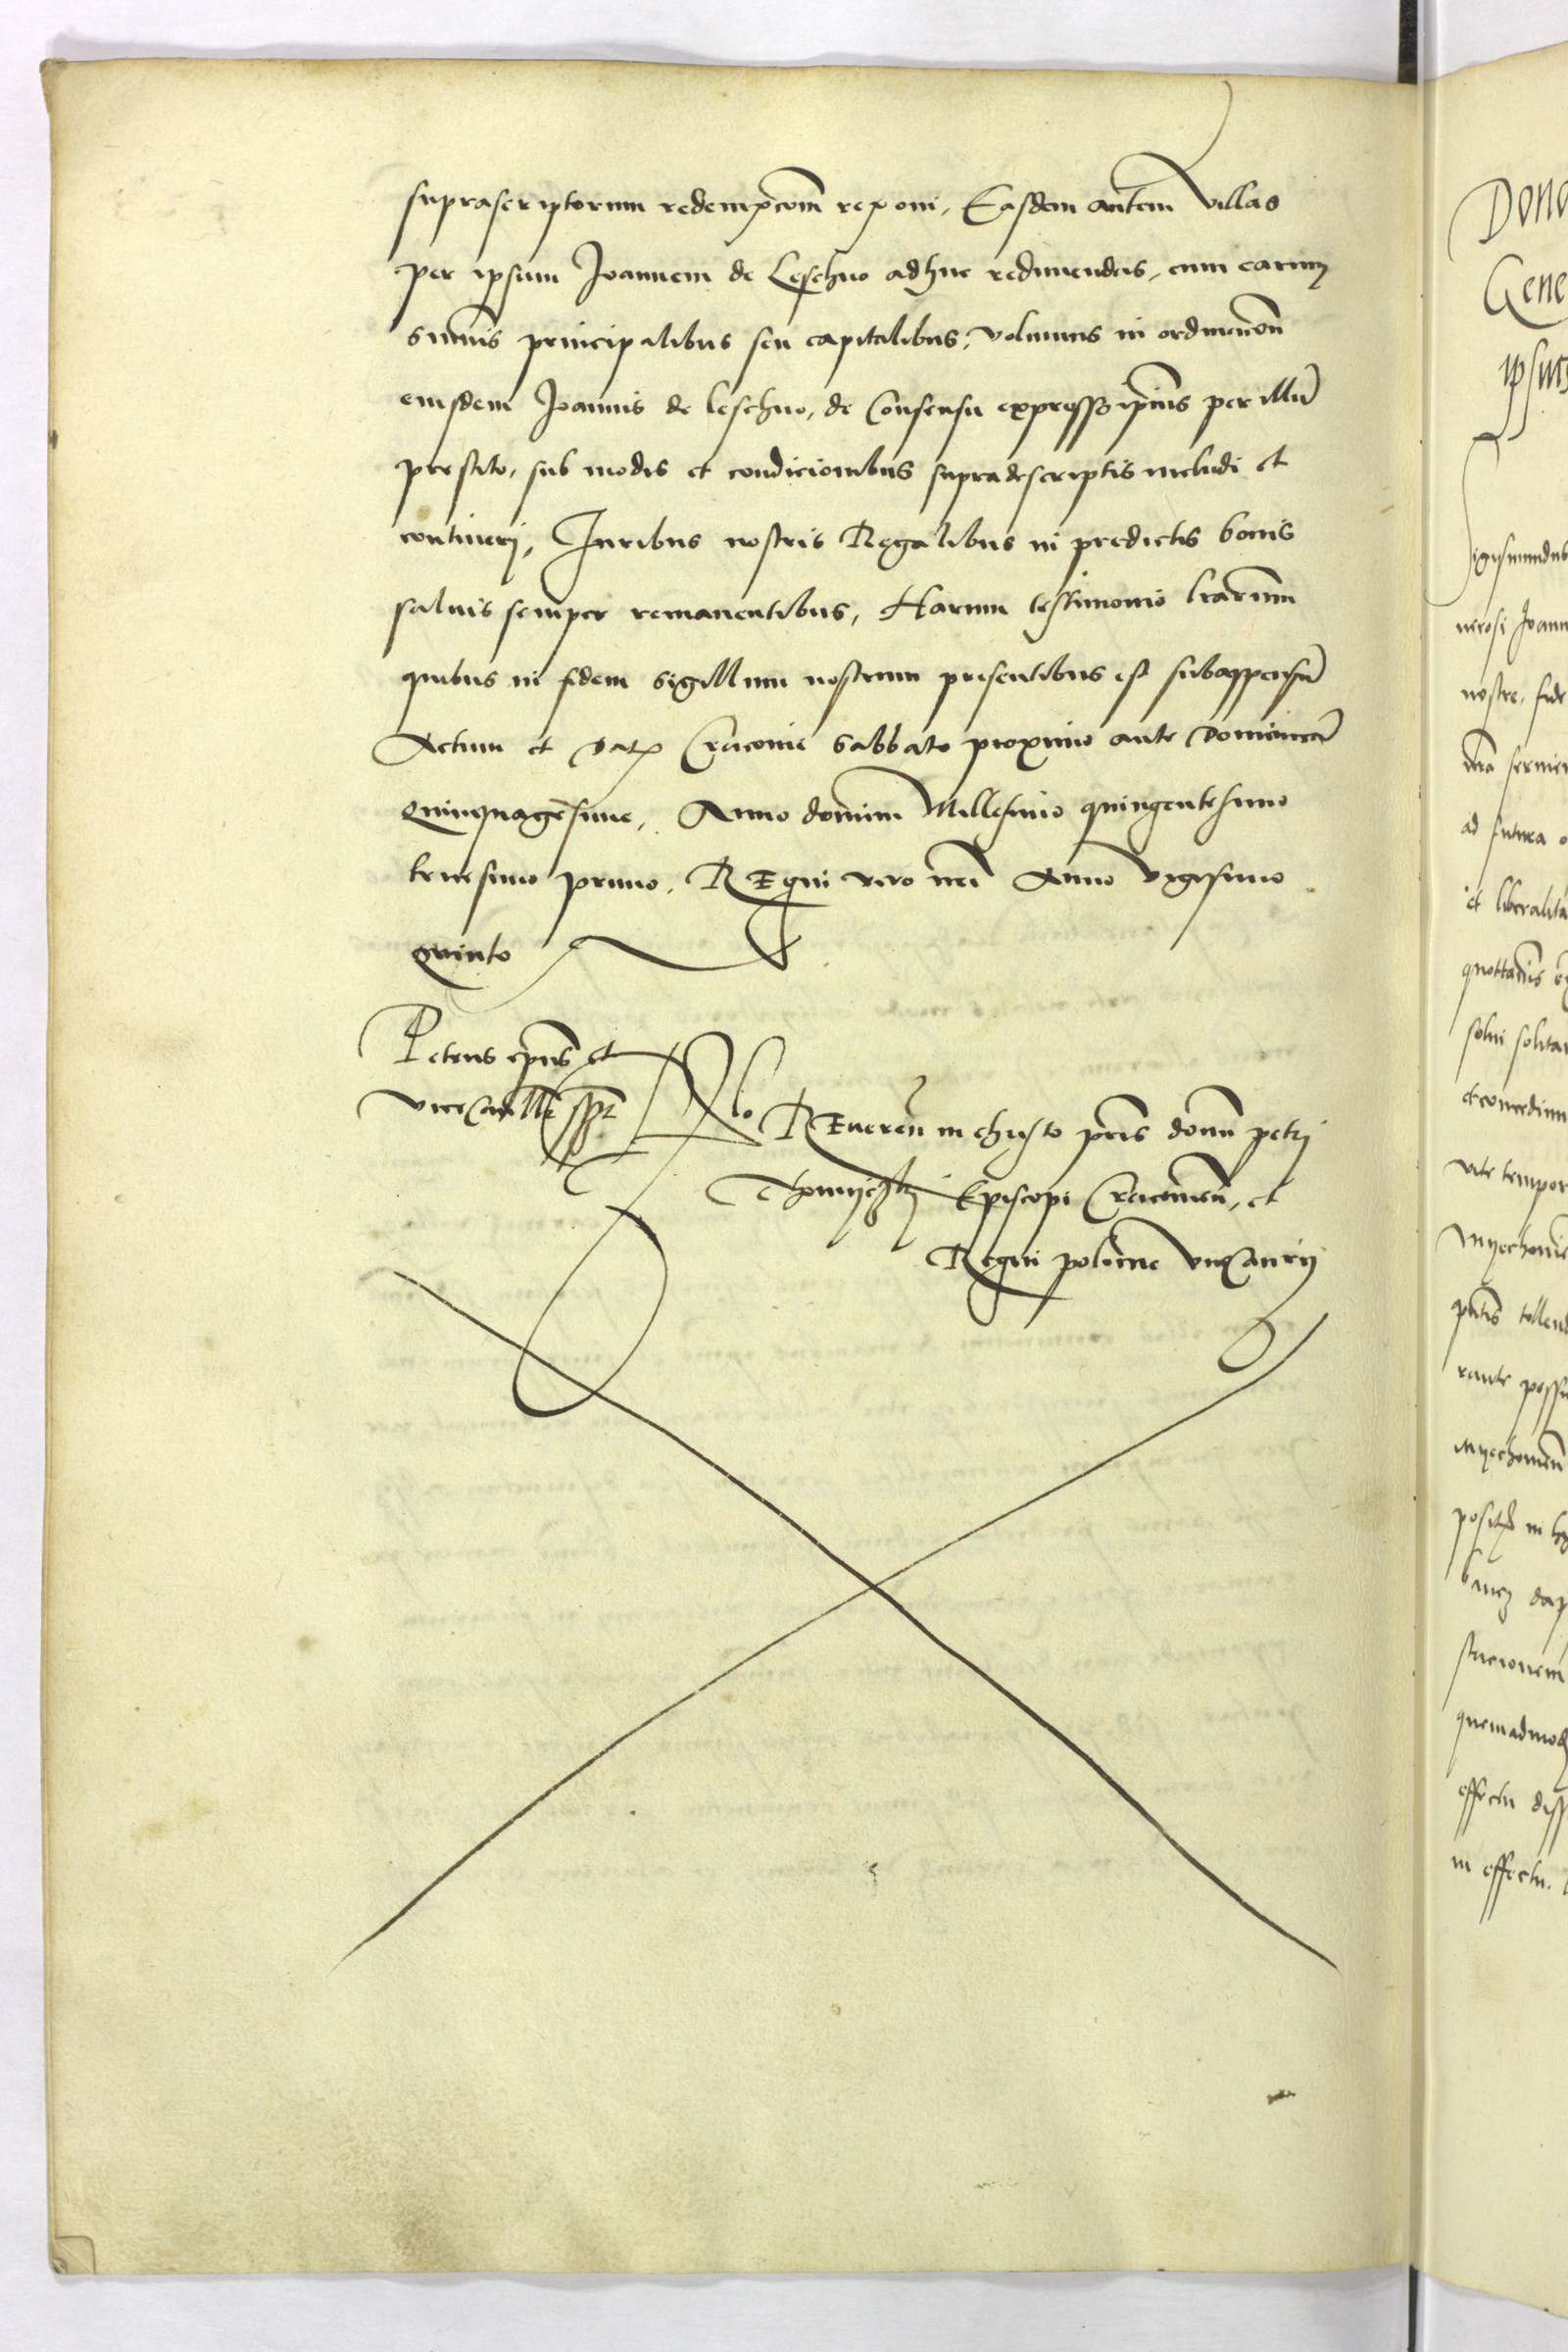 suprascriptorum redempcoem reponi, Easdem autem villas
per ipsum Joannem de Leschno adhuc redimendas, cum earum
summis principalibus seu capitalibus, volumus in ordinacoem
eiusdem Joannis de leschno, de Consensu expresso ipius per illum
prestito, sub modis et condicionibus supradescriptis includi et
contineri, Juribus nostris Regalibus in predictis bonis
saluis semper remanentibus, Harum testimonio lrarum
quibus in fidem sigillum nostrum presentibus est subappensum
Actum et Datum Cracouie Sabbato proximo ante Dominicam
Quinquagesime, Anno domini Millesimo quingentesimo
tricesimo primo, REgni vero nri Anno vigesimo
quinto
Petrus epus et
vicecancell sspt
Rlo REueren in christo pris domi petri
Thomyczky Episcopi Cracouien, et
Regni polonie viceCancrij
Dono
Gene
ipsius
Sigismundus
nerosi Joann
nostre, fide
ad futura
et liberalita
quottannis
solui solita
et concedim
vite tempor
Myechouie
tollend
rante posse
Myechouien
posit in
stacionem
quemadmod
effectu disp
in effectu.